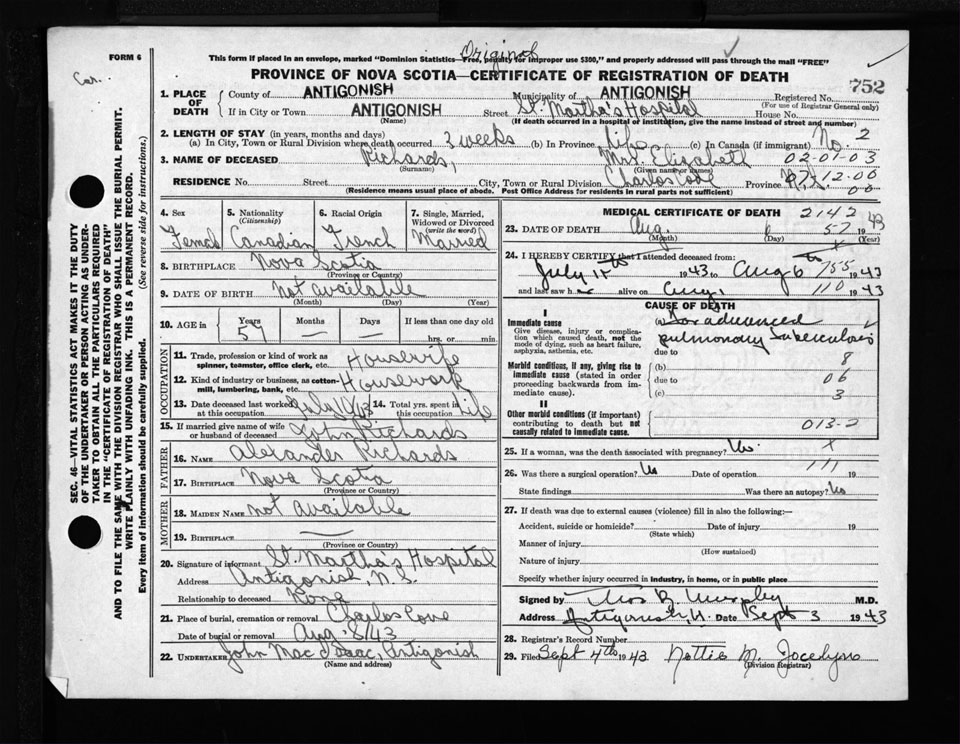 Original
FORM 6
Car.
This form if placed in an envelope, marked "Dominion Statistics—Free, penalty for improper use $300," and properly addressed will pass through the mail "FREE"
PROVINCE OF NOVA SCOTIA—CERTIFICATE OF REGISTRATION OF DEATH
752
1. PLACE OF DEATH
County of ANTIGONISH Municipality of ANTIGONISH Registered No.
(For use of Registrar General only)
If in City or Town ANTIGONISH Street St. Martha's Hospital House No.
(Name) (If death occurred in a hospital or institution, give the name instead of street and number)
2. LENGTH OF STAY (in years, months and days)
(a) In City, Town or Rural Division where death occurred 3 weeks (b) In Province Life (c) In Canada (if immigrant) No. 2
3. NAME OF DECEASED Richards, Mrs. Elizabeth 02-01-03
(Surname) (Given name or names)
RESIDENCE No. Street City, Town or Rural Division Province N.S. 07-12-00
(Residence means usual place of abode. Post Office Address for residents in rural parts not sufficient) 00
4. Sex 5. Nationality (Citizenship) 6. Racial Origin 7. Single, Married, Widowed or Divorced (write the word)
Female Canadian French Married
8. BIRTHPLACE Nova Scotia
(Province or Country)
9. DATE OF BIRTH Not available
(Month) (Day) (Year)
10. AGE in Years Months Days If less than one day old
57 — — hrs. or min.
OCCUPATION
11. Trade, profession or kind of work as spinner, teamster, office clerk, etc. Housewife
12. Kind of industry or business, as cotton-mill, lumbering, bank, etc. Housework
13. Date deceased last worked at this occupation July 14. Total yrs. spent in this occupation Life
15. If married give name of wife or husband of deceased John Richards
FATHER
16. NAME Alexander Richards
17. BIRTHPLACE Nova Scotia
(Province or Country)
MOTHER
18. MAIDEN NAME not Available
19. BIRTHPLACE —
(Province or Country)
20. Signature of informant St. Martha's Hospital
Address Antigonish, N.S.
Relationship to deceased None
21. Place of burial, cremation or removal Charlos Cove
Date of burial or removal Aug. 8/43
22. UNDERTAKER John Mac Isaac, Antigonish
(Name and address)
MEDICAL CERTIFICATE OF DEATH 2142
23. DATE OF DEATH Aug. 6 57 1943
(Month) (Day) (Year)
24. I HEREBY CERTIFY that I attended deceased from:
July 15th 1943 to Aug 6th 755 1943
and last saw h alive on Aug. 110 1943
CAUSE OF DEATH
I
Immediate cause
Give disease, injury or complication which caused death, not the mode of dying, such as heart failure, asphyxia, asthenia, etc.
(a) Far advanced
pulmonary Tuberculosis
due to 8
Morbid conditions, if any, giving rise to immediate cause (stated in order proceeding backwards from immediate cause).
(b)
due to 06
(c) 3
II
Other morbid conditions (if important) contributing to death but not causally related to immediate cause.
013-2
25. If a woman, was the death associated with pregnancy? No. X
26. Was there a surgical operation? No Date of operation 111 19
State findings Was there an autopsy? No
27. If death was due to external causes (violence) fill in also the following:—
Accident, suicide or homicide? Date of injury 19
(State which)
Manner of injury
(How sustained)
Nature of injury
Specify whether injury occurred in industry, in home, or in public place
Signed by Thos B Murphy M.D.
Address Antigonish, Date Sept 3 1943
28. Registrar's Record Number
29. Filed Sept 4th 1943 Nettie M. Jocelyn
(Division Registrar)
SEC. 46—VITAL STATISTICS ACT MAKES IT THE DUTY
OF THE UNDERTAKER OR PERSON ACTING AS UNDER-
TAKER TO OBTAIN ALL THE PARTICULARS REQUIRED
IN THE "CERTIFICATE OF REGISTRATION OF DEATH"
AND TO FILE THE SAME WITH THE DIVISION REGISTRAR WHO SHALL ISSUE THE BURIAL PERMIT.
WRITE PLAINLY WITH UNFADING INK. THIS IS A PERMANENT RECORD.
Every item of information should be carefully supplied. (See reverse side for instructions.)